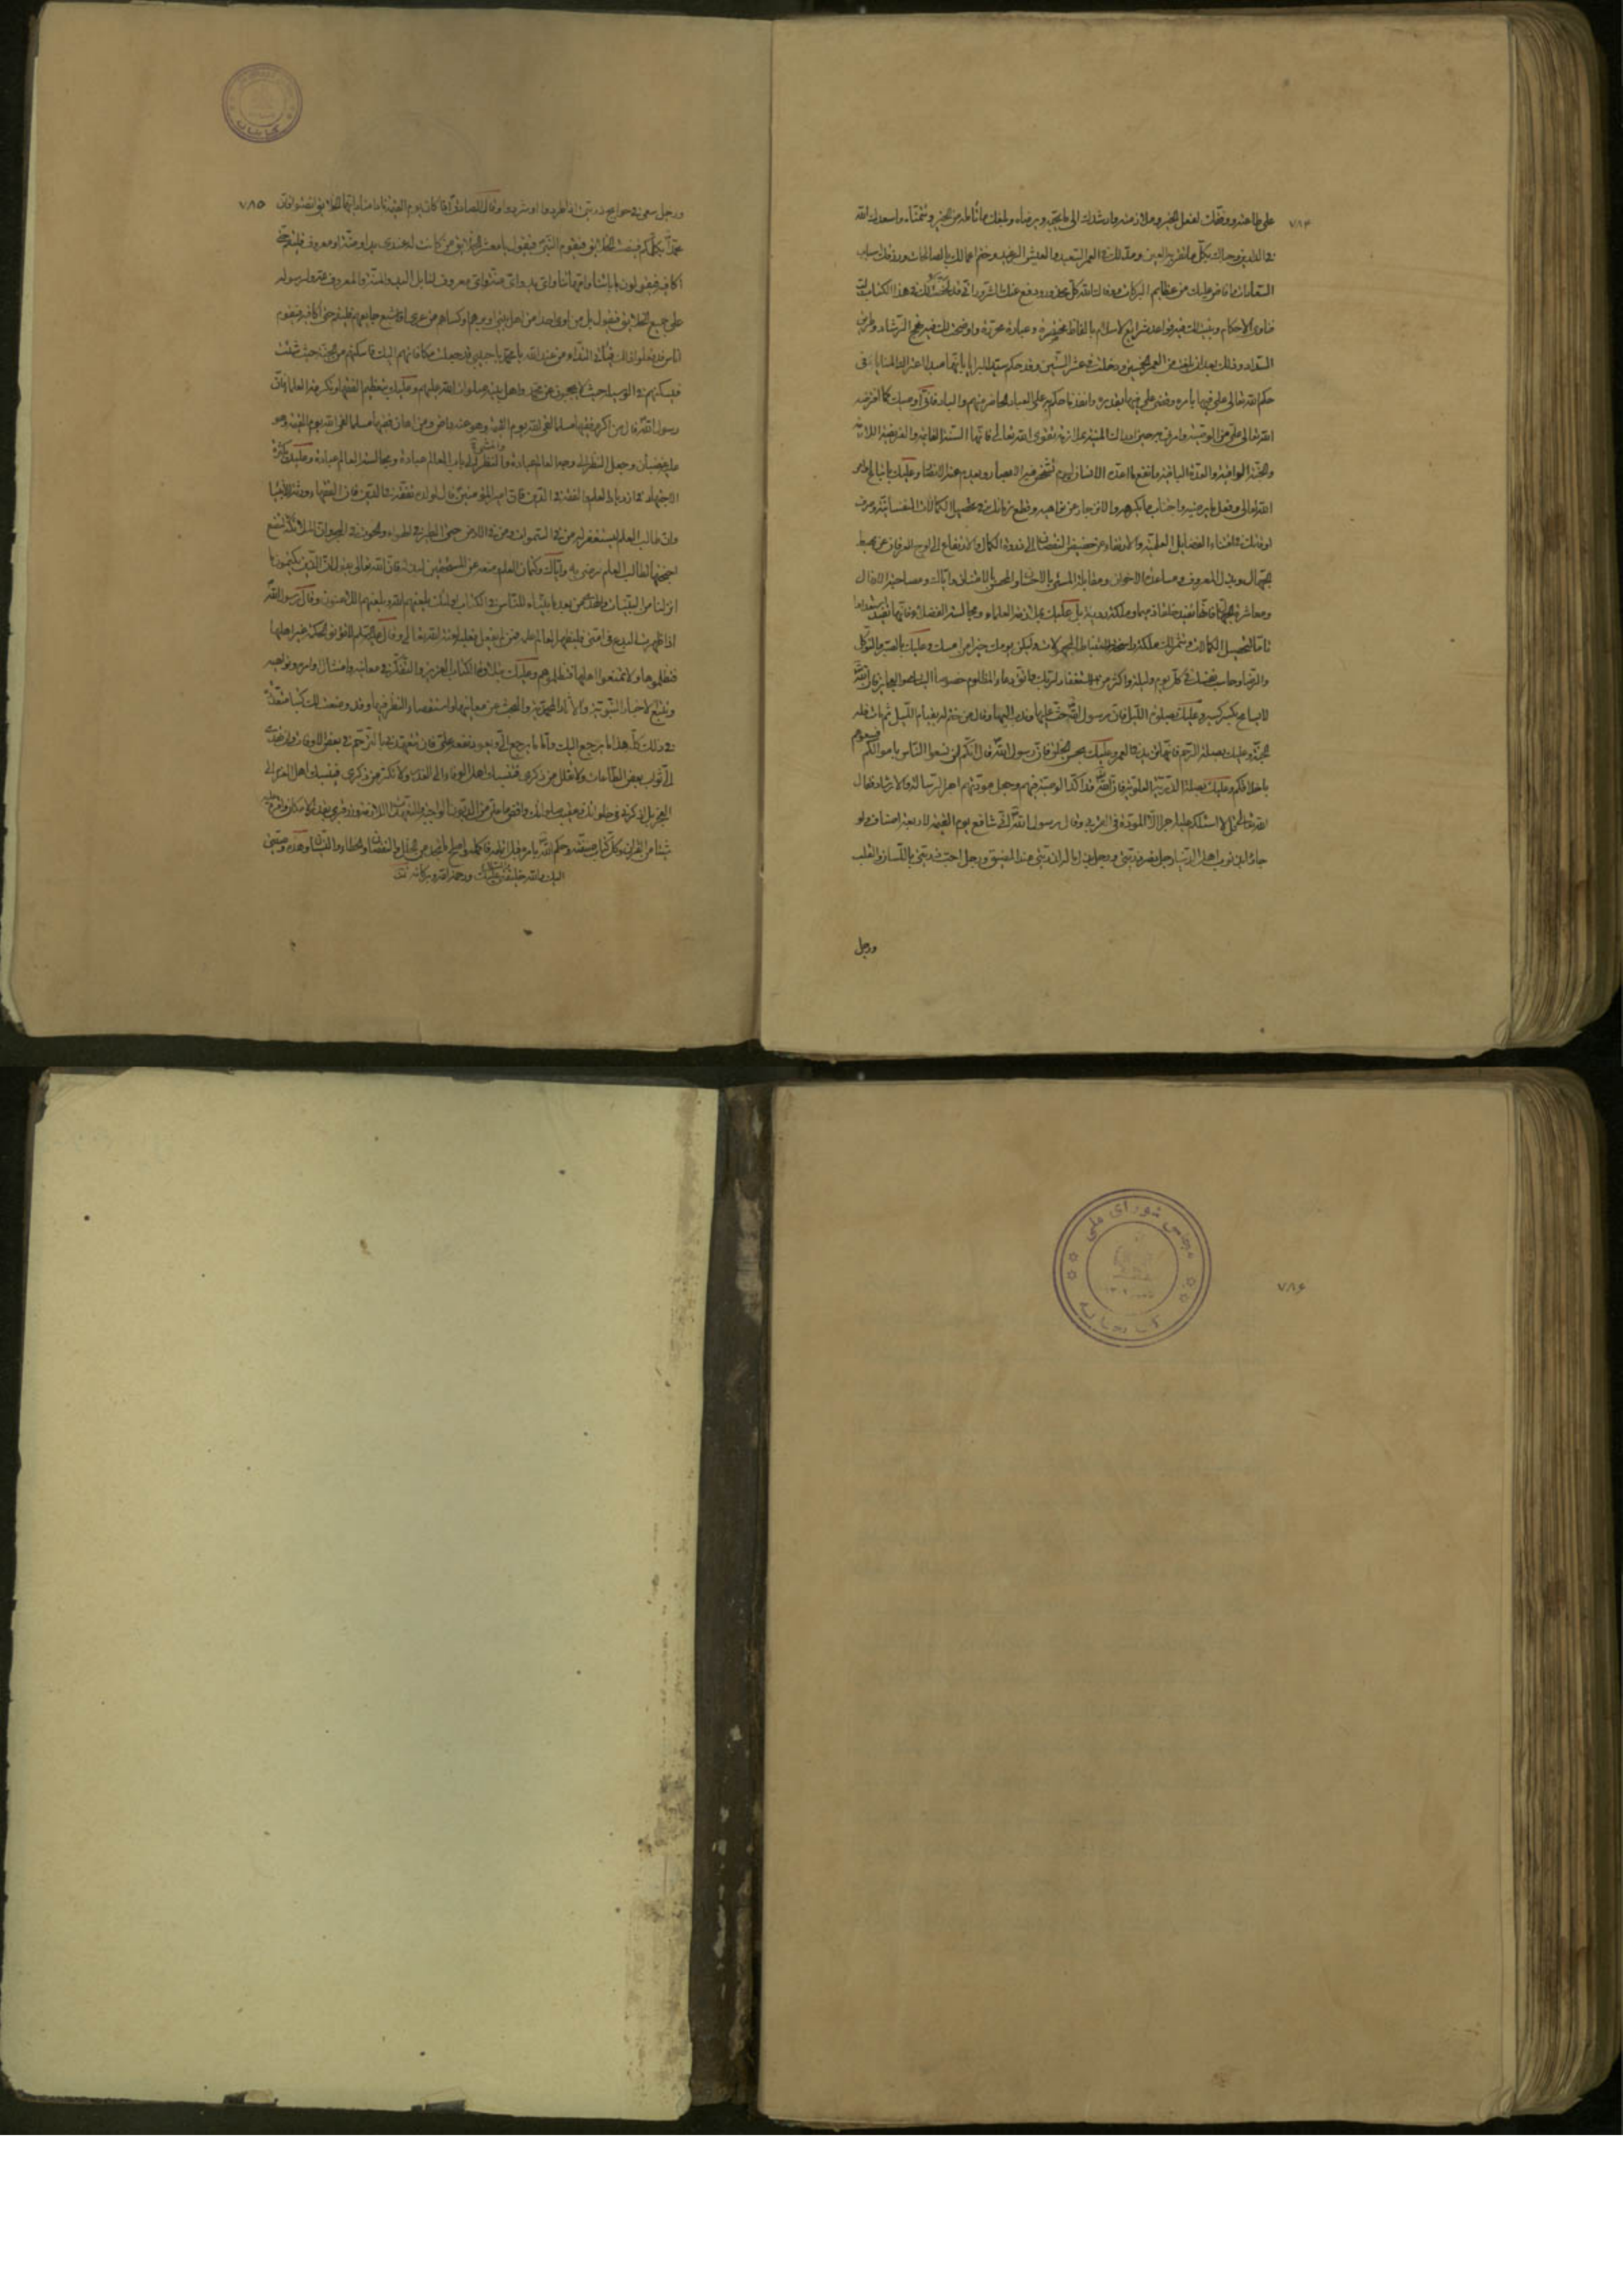 ٧٨٤
على طاعته ووفقك لفعل الخير وملازمته وارشدك الى ما يحبّه ويرضاه وبلغك ما تأمله من الخير وتتمنّاه واسعدك الله
في الدارين وحباك بكلّ ما تقرّ به العين ومدّ لك في العمر السّعيد والعيش الرغيد وختم اعمالك بالصالحات ورزقك اسباب
السّعادات وافاض عليك من عظايم البركات ووقاك الله كلّ محذور ودفع عنك الشّرور انّي قد لخّصت لك في هذا الكتاب لب
فتاوى الاحكام وبيّنت لك فيه قواعد شرايع الاسلام بالفاظ مختصرة وعبارة محرّرة واوضحت لك فيه نهج الرّشاد وطريق
السّداد وذلك بعد ان بلغت من العمر الخمسين ودخلت في عشر السّتين وقد حكم سيّد البرايا بانّها مبدأ اعتراك المنايا فان
حكم الله تعالى عليّ فيها بامره وقضى عليّ فيها بقدره وانفذ ما حكم به على العباد الحاضر منهم والباد فانّي اوصيك كما افترضه
الله تعالى عليّ من الوصيّة وامرني به حين ادراك المنيّة بملازمة تقوى الله تعالى فانّها السنّة القائمة والفريضة اللازمة
والجنّة الواقية والعدّة الباقية وانفع ما اعدّه الانسان ليوم تشخص فيه الابصار ويعدم عنه الانصار وعليك باتّباع اوامر
الله تعالى وفعل ما يرضيه واجتناب ما يكرهه والانزجار عن نواهيه وقطع زمانك في تحصيل الكمالات النفسانيّة وصرف
اوقاتك في اقتناء الفضايل العلميّة والارتقاء عن حضيض النقصان الى ذروة الكمال والارتفاع الى اوج العرفان عن مهبط
الجهّال وبذل المعروف ومساعدة الاخوان ومقابلة المسئ بالاحسان والمحسن بالامتنان وايّاك ومصاحبة الارذال
ومعاشرة الجهّال فانّها تفيد خلقا ذميما وملكة رديّة بل عليك بملازمة العلماء ومجالسة الفضلاء فانّها تفيد استعدادا
تامّا لتحصيل الكمالات وتثمر لك ملكة راسخة لاستنباط المجهولات وليكن يومك خيرا من امسك وعليك بالصبر والتّوكّل
والرّضا وحاسب نفسك في كلّ يوم وليلة واكثر من الاستغفار لربّك واتّق دعاء المظلوم خصوصا اليتامى والعجايز فان الله
لا يسامح بكسر كسير وعليك بصلوة اللّيل فانّ رسول الله حثّ عليها وندب اليها وقال من ختم له بقيام اللّيل ثم مات فله
الجنّة وعليك بصلة الرّحم فانّها تزيد في العمر وعليك بحسن الخلق فانّ رسول الله قال انّكم لن تسعوا النّاس باموالكم فسعوهم
باخلاقكم وعليك بصلة الذّريّة العلويّة فانّ الله قد اكّد الوصيّة فيهم وجعل مودّتهم اجر الرّسالة والارشاد فقال
الله تعالى قل لا اسئلكم عليه اجرا الّا المودّة في القربى وقال رسول الله انّي شافع يوم القيمة لاربعة اصناف ولو
جاؤا بذنوب اهل الدّنيا رجل نصر ذريّتي ورجل بذل ماله لذريّتي عند المضيق ورجل احبّ ذريّتي باللّسان والقلب
ورجل
٧٨٥
ورجل سعى في حوايج ذريّتي اذا طردوا او شردوا وقال الصادق اذا كان يوم القيمة نادى مناد ايّها الخلايق انصتوا فانّ
محمّدا يكلّمكم فينصت الخلايق فيقوم النّبيّ فيقول يا معشر الخلايق من كانت له عندي يد او منّة او معروف فليقم حتّى
اكافيه فيقولون بابائنا وامّهاتنا واىّ يد واىّ منّة واىّ معروف لنا بل اليد والمنّة والمعروف لله ولرسوله
على جميع الخلايق فيقول بل من اوى احدا من اهل بيتي او برّهم او كساهم من عرى او اشبع جايعهم فليقم حتى اكافيه فيقوم
اناس قد فعلوا ذلك فيأتي النّداء من عند الله يا محمّد يا حبيبي قد جعلت مكافاتهم اليك فاسكنهم من الجنّة حيث شئت
فيسكنهم في الوسيلة حيث لا يحجبون عن محمّد واهل بيته صلوات الله عليهم وعليك بتعظيم الفقهاء وتكرمة العلماء فانّ
رسول الله قال من اكرم فقيها مسلما لقي الله يوم القيمة وهو عنه راض ومن اهان فقيها مسلما لقي الله يوم القيمة وهو
عليه غضبان وجعل النّظر الى وجه العالم عبادة والنّظر الى باب العالم عبادة ومجالسة العالم عبادة وعليك بكثرة
الاجتهاد في ازدياد العلم والتفقّه في الدّين فانّ امير المؤمنين قال لولده تفقّه في الدّين فانّ الفقهاء ورثة الانبياء
وان طالب العلم يستغفر له من في السّموات ومن في الارض حتّى الطير في الهواء والحوت في البحر وانّ الملائكة لتضع
اجنحتها لطالب العلم رضى به وايّاك وكتمان العلم ومنعه عن المستحقّين لبذله فانّ الله تعالى يقول انّ الّذين يكتمون ما
انزلنا من البيّنات والهدى من بعد ما بيّناه للنّاس في الكتاب اولئك يلعنهم الله ويلعنهم اللاعنون وقال رسول الله
اذا ظهرت البدع في امّتي فليظهر العالم علمه فمن لم يفعل فعليه لعنة الله تعالى وقال عليه السّلم لا تؤتوا الحكمة غير اهلها
فتظلموها ولا تمنعوا اهلها فتظلموهم وعليك بتلاوة الكتاب العزيز والتّفكّر في معانيه وامتثال اوامره ونواهيه
وتتبّع الاخبار النّبويّة والآثار المحمّديّة والبحث عن معانيها واستقصاء النّظر فيها وقد وضعت لك كتبا متعدّدة
في ذلك كلّه هذا ما يرجع اليك وامّا ما يرجع اليّ ويعود نفعه عليّ فان تتعهّدني بالتّرحّم في بعض الاوقات وان تهدي
اليّ ثواب بعض الطّاعات ولا تقلل من ذكري فينسبك اهل الوفاء الى الغدر ولا تكثر من ذكري فينسبك اهل العزم الى
العجز بل اذكرني في خلواتك وعقيب صلواتك واقض ما عليّ من الدّيون الواجبة والتّعهّدات اللازمة وزر قبري بقدر الامكان واقرأ عليه
شيئا من القران وكلّ كتاب صنّفته وحكم الله بامره قبل اتمامه فاكمله واصلح ما تجده من الخلل والنقصان والخطاء والنّسيان وهذه وصيّتي
اليك والله خليفتي عليك ورحمة الله وبركاته
٧٨۶
مجلس شورای ملی
کتابخانه